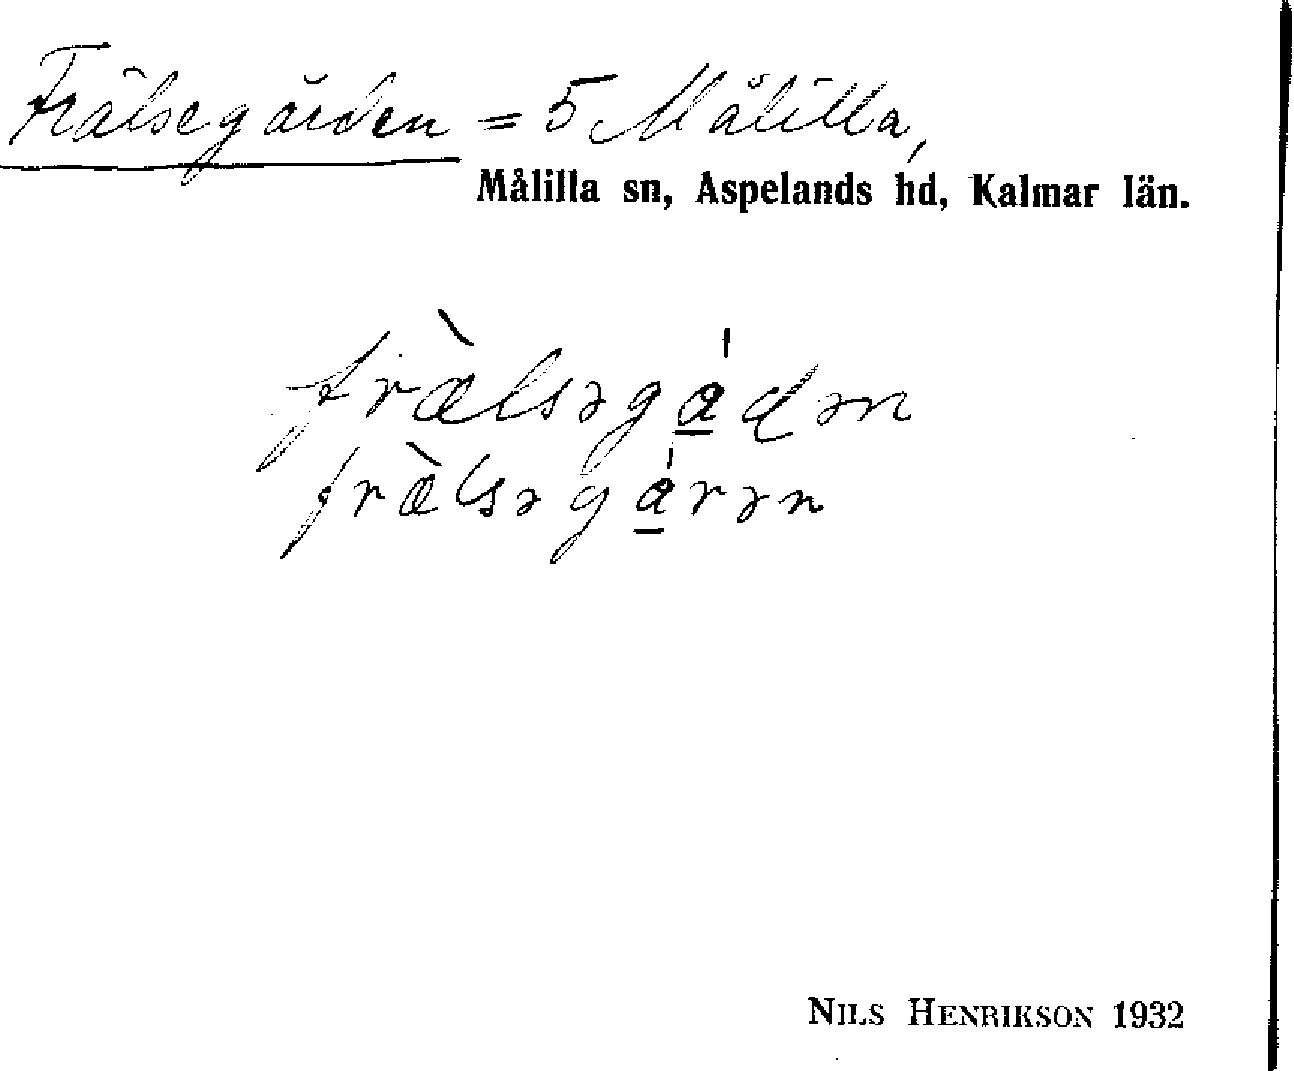 Frälsegården = 5 Målilla,
Målilla sn, Aspelands hd, Kalmar län.
fræ̀lsəgá̲ɖən
fræ̀lsəgá̲rən
NILS HENRIKSON 1932